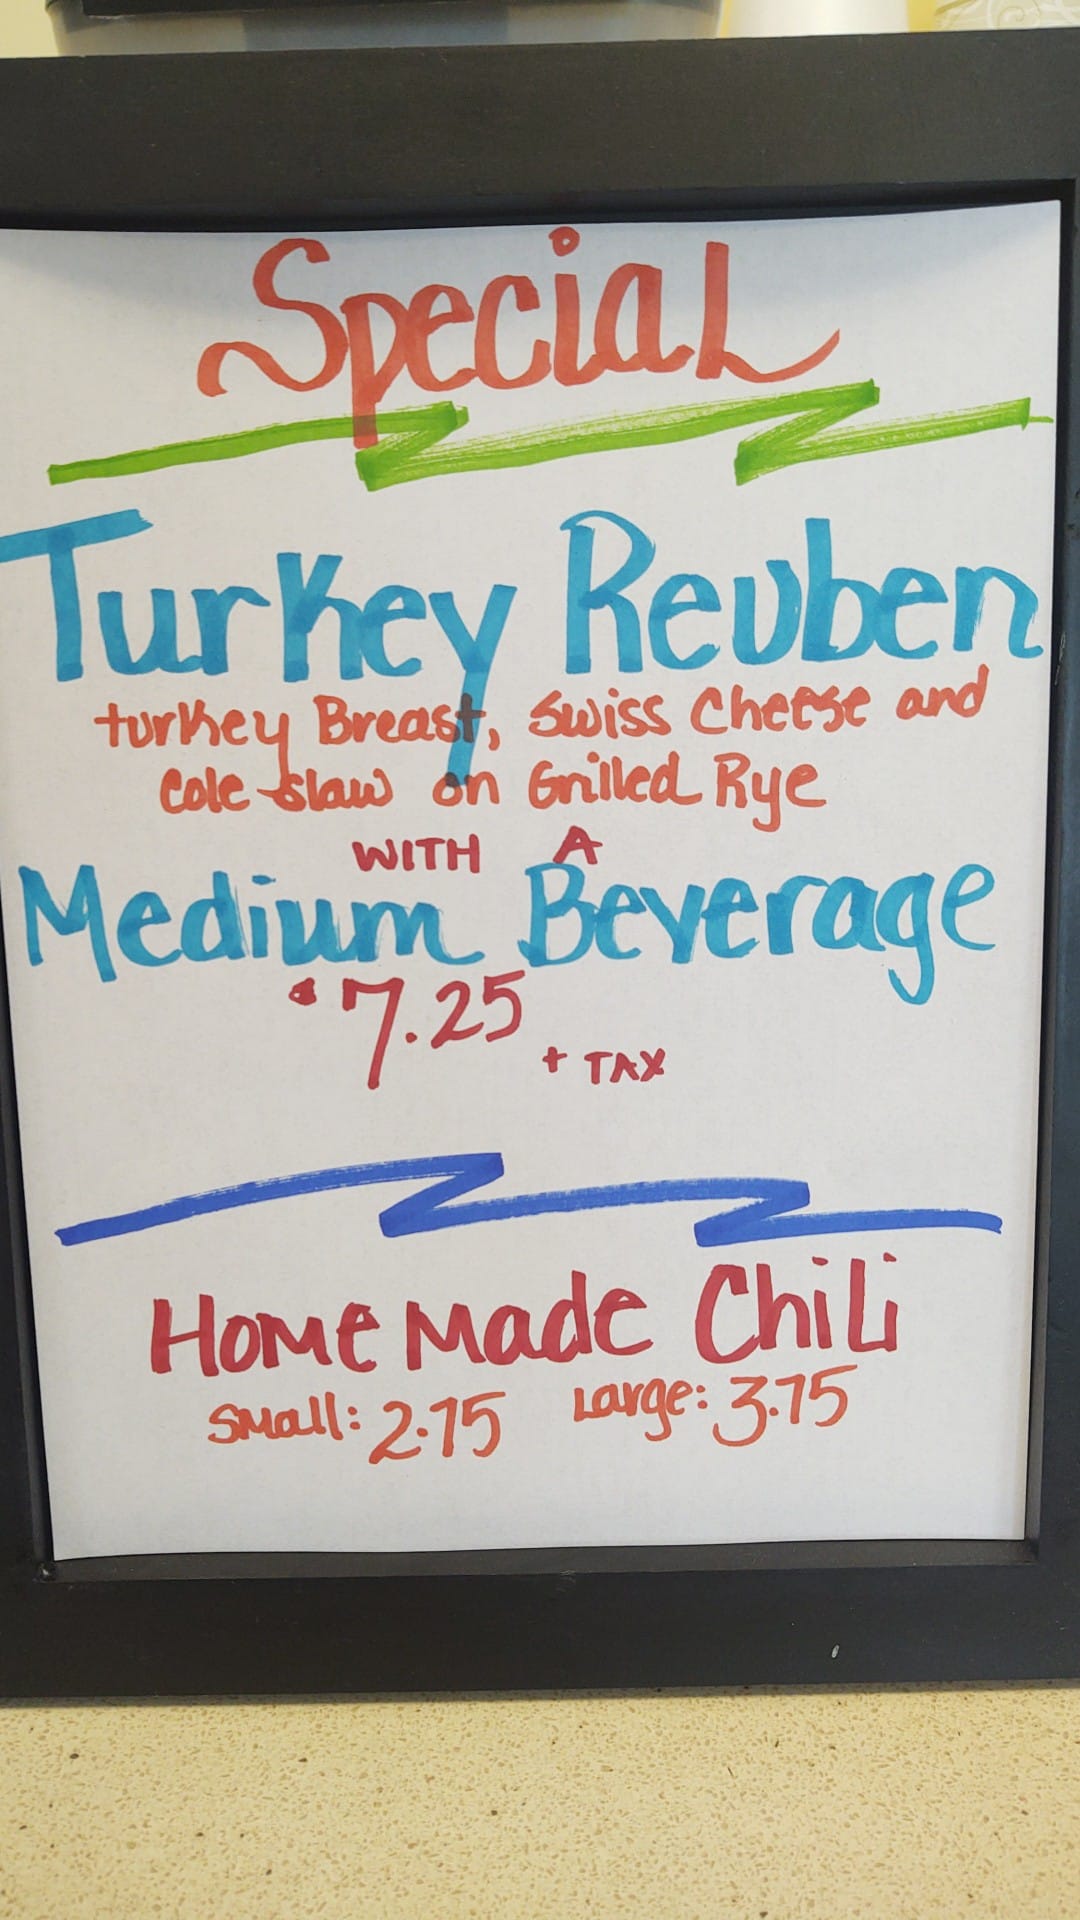 Special
Turkey Reuben
turkey Breast, Swiss Cheese and
Cole slaw on Grilled Rye
WITH A
Medium Beverage
$7.25 + TAX
Home Made Chili
Small: 2.75 Large: 3.75